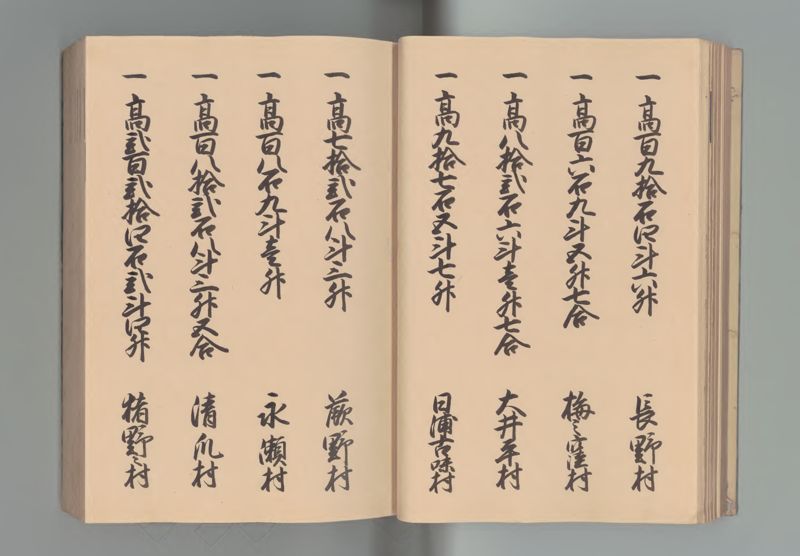 一 高百九拾石四斗六升 長野村
一 高百六石九斗五升七合 梅之窪村
一 高八拾弐石六斗壱升七合 大井平村
一 高九拾七石五斗七升 日浦古味村
一 高七拾弐石八斗三升 蕨野村
一 高百八石九斗壱升 永瀬村
一 高百八拾弐石八斗三升五合 清爪村
一 高弐百弐拾四石弐斗四升 楮野々村